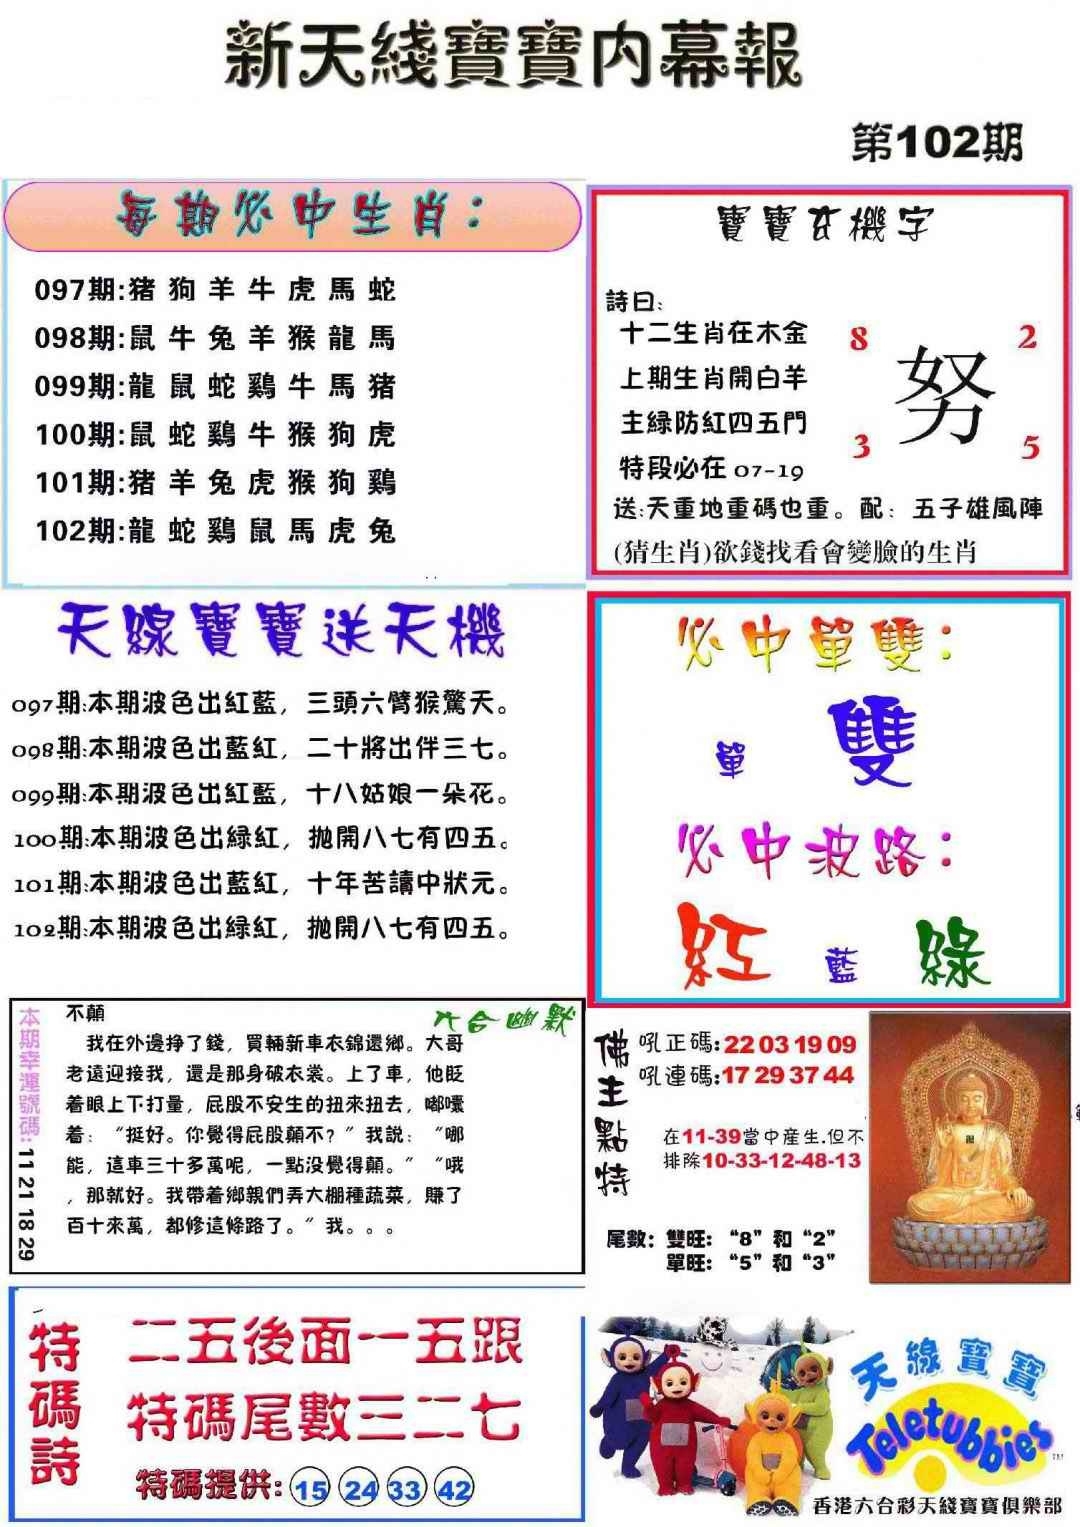 新天綫寶寶内幕報
第102期
每期必中生肖：
097期:猪 狗 羊 牛 虎 馬 蛇
098期:鼠 牛 兔 羊 猴 龍 馬
099期:龍 鼠 蛇 鷄 牛 馬 猪
100期:鼠 蛇 鷄 牛 猴 狗 虎
101期:猪 羊 兔 虎 猴 狗 鷄
102期:龍 蛇 鷄 鼠 馬 虎 兔
寶寶玄機字
詩曰:
十二生肖在木金
上期生肖開白羊
主緑防紅四五門
特段必在 07-19
8 2
努
3 5
送:天重地重碼也重。配：五子雄風陣
(猜生肖)欲錢找看會變臉的生肖
天線寶寶送天機
097期:本期波色出紅藍，三頭六臂猴驚天。
098期:本期波色出藍紅，二十將出伴三七。
099期:本期波色出紅藍，十八姑娘一朵花。
100期:本期波色出緑紅，抛開八七有四五。
101期:本期波色出藍紅，十年苦讀中狀元。
102期:本期波色出緑紅，抛開八七有四五。
必中單雙：
單 雙
必中波路：
紅 藍 綠
本期幸運號碼: 11 21 18 29
六合幽默
不顛
我在外邊挣了錢，買輛新車衣錦還鄉。大哥
老遠迎接我，還是那身破衣裳。上了車，他眨
着眼上下打量，屁股不安生的扭來扭去，嘟囔
着：“挺好。你覺得屁股顛不？”我説：“哪
能，這車三十多萬呢，一點没覺得顛。”“哦
，那就好。我帶着鄉親們弄大棚種蔬菜，賺了
百十來萬，都修這條路了。”我。。。
佛主點特
吼正碼:22 03 19 09
吼連碼:17 29 37 44
在11-39當中産生.但不
排除10-33-12-48-13
尾數：雙旺：“8”和“2”
單旺：“5”和“3”
特碼詩
二五後面一五跟
特碼尾數三二七
特碼提供: 15 24 33 42
天線寶寶
Teletubbies
TM
香港六合彩天綫寶寶俱樂部